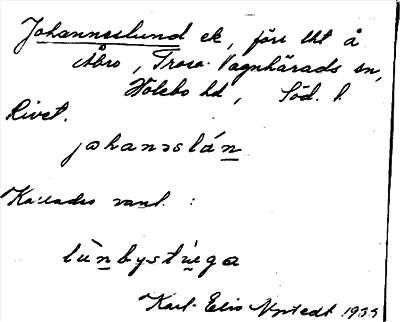 Johanneslund ek, förr tht å
Åbro, Trosa-Vagnhärads sn,
Hölebo hd, Söd. l.
Rivet.
johanəslán
Kallades vanl. :
lùnbystúga
Karl-Eric Nystedt 1935